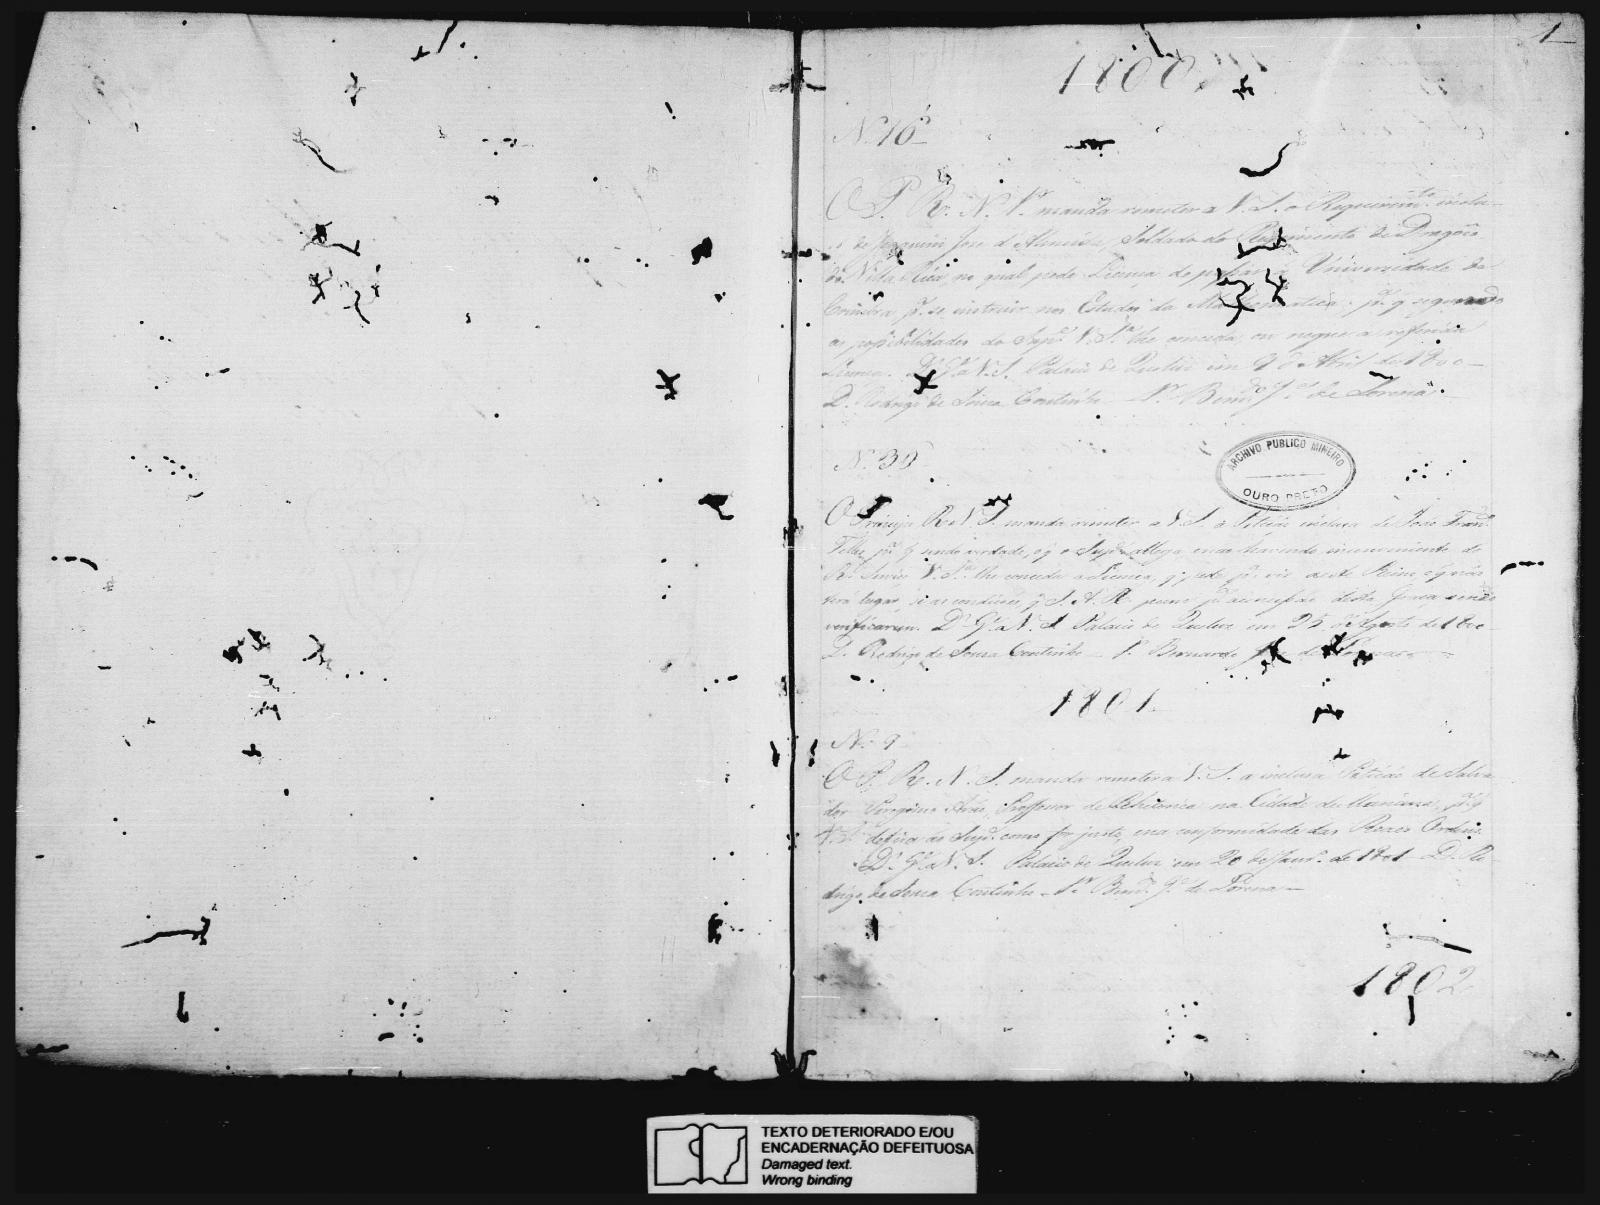 1
1800
Nº 16
O P. R. N. Sr. manda remeter a V. S. o Requerimto. inclu-
so de Joaquim Jose d'Almeida, Soldado do Regimento de Dragões
de Villa Rica, no qual pede Licença de passar á Universidade de
Coimbra pa. se instruir nos Estudos da Mathematica, pa. q segundo
as possibilidades do Supe. V. Sa. lhe conceda, ou negue a referida
Licença. Ds. Ge. a V. S. Palacio de Queluz em 9 de Abril de 1800
D. Rodrigo de Souza Coutinho Sr. Berndo. Je. de Lorena
Nº 39
O Principe R. N. S. manda remeter a V. S. a Petição incluza de João Franco.
pa. q sendo verdade, o q o Supe. allega, e não havendo inconveniente do
Rl. Serviço V. Sa. lhe conceda a Licença, q pede pa. vir a este Reino, o q não
terá lugar, se as condições q S. A. R. poem desta Graça senão
verificarem. Ds. Ge. a V. S. Palacio de Queluz em 25 de Agosto de 1800
D. Rodrigo de Souza Coutinho Sr. Bernardo Je. de Lorena
ARCHIVO PUBLICO MINEIRO
OURO PRETO
1801
Nº 9
O P. R. N. S. manda remeter a V. S. a incluza Petição de Salva-
dor Peregrino Professor de Rhetorica na Cidade de Marianna, pa. q
V. Sa. defira ao Supe. como for justo, e na conformidade das Reaes Ordens.
Ds. Ge. a V. S. Palacio de Queluz em 20 de Janro. de 1801 D. Ro-
drigo de Souza Coutinho Sr. Berndo. Je. de Lorena
1802
TEXTO DETERIORADO E/OU
ENCADERNAÇÃO DEFEITUOSA
Damaged text.
Wrong binding